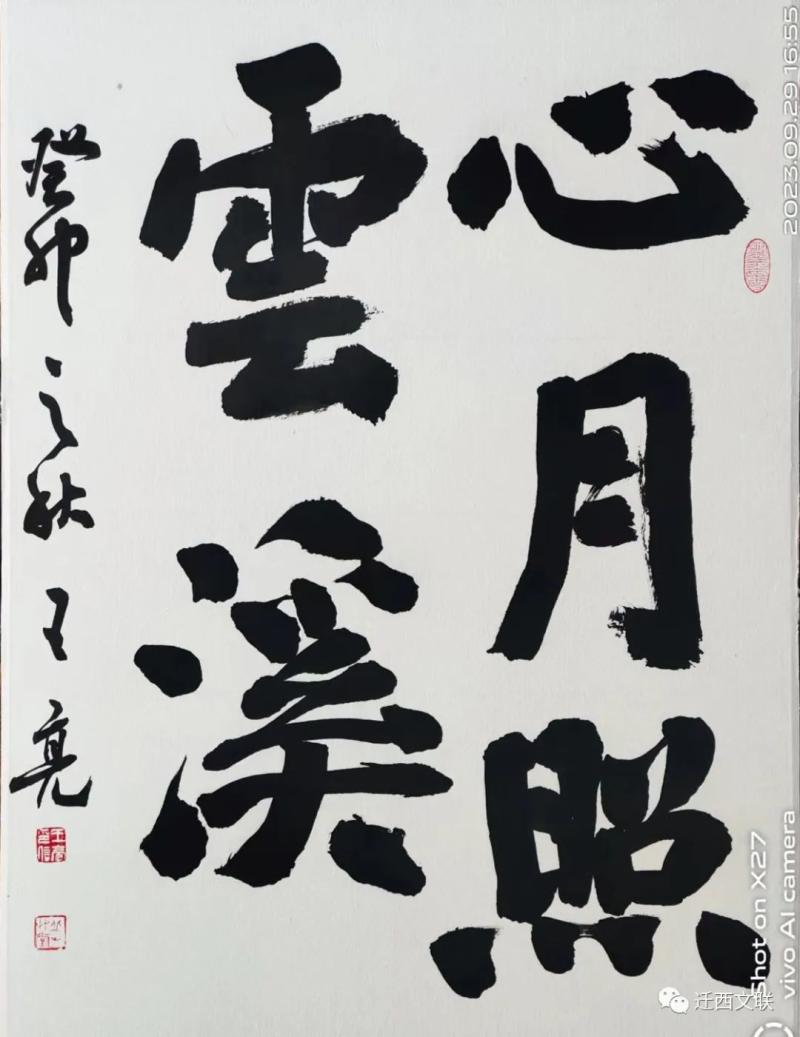 心月照
雲溪
癸卯之秋 王亮
2023.09.29 16:55
Shot on X27
vivo AI camera
迁西文联